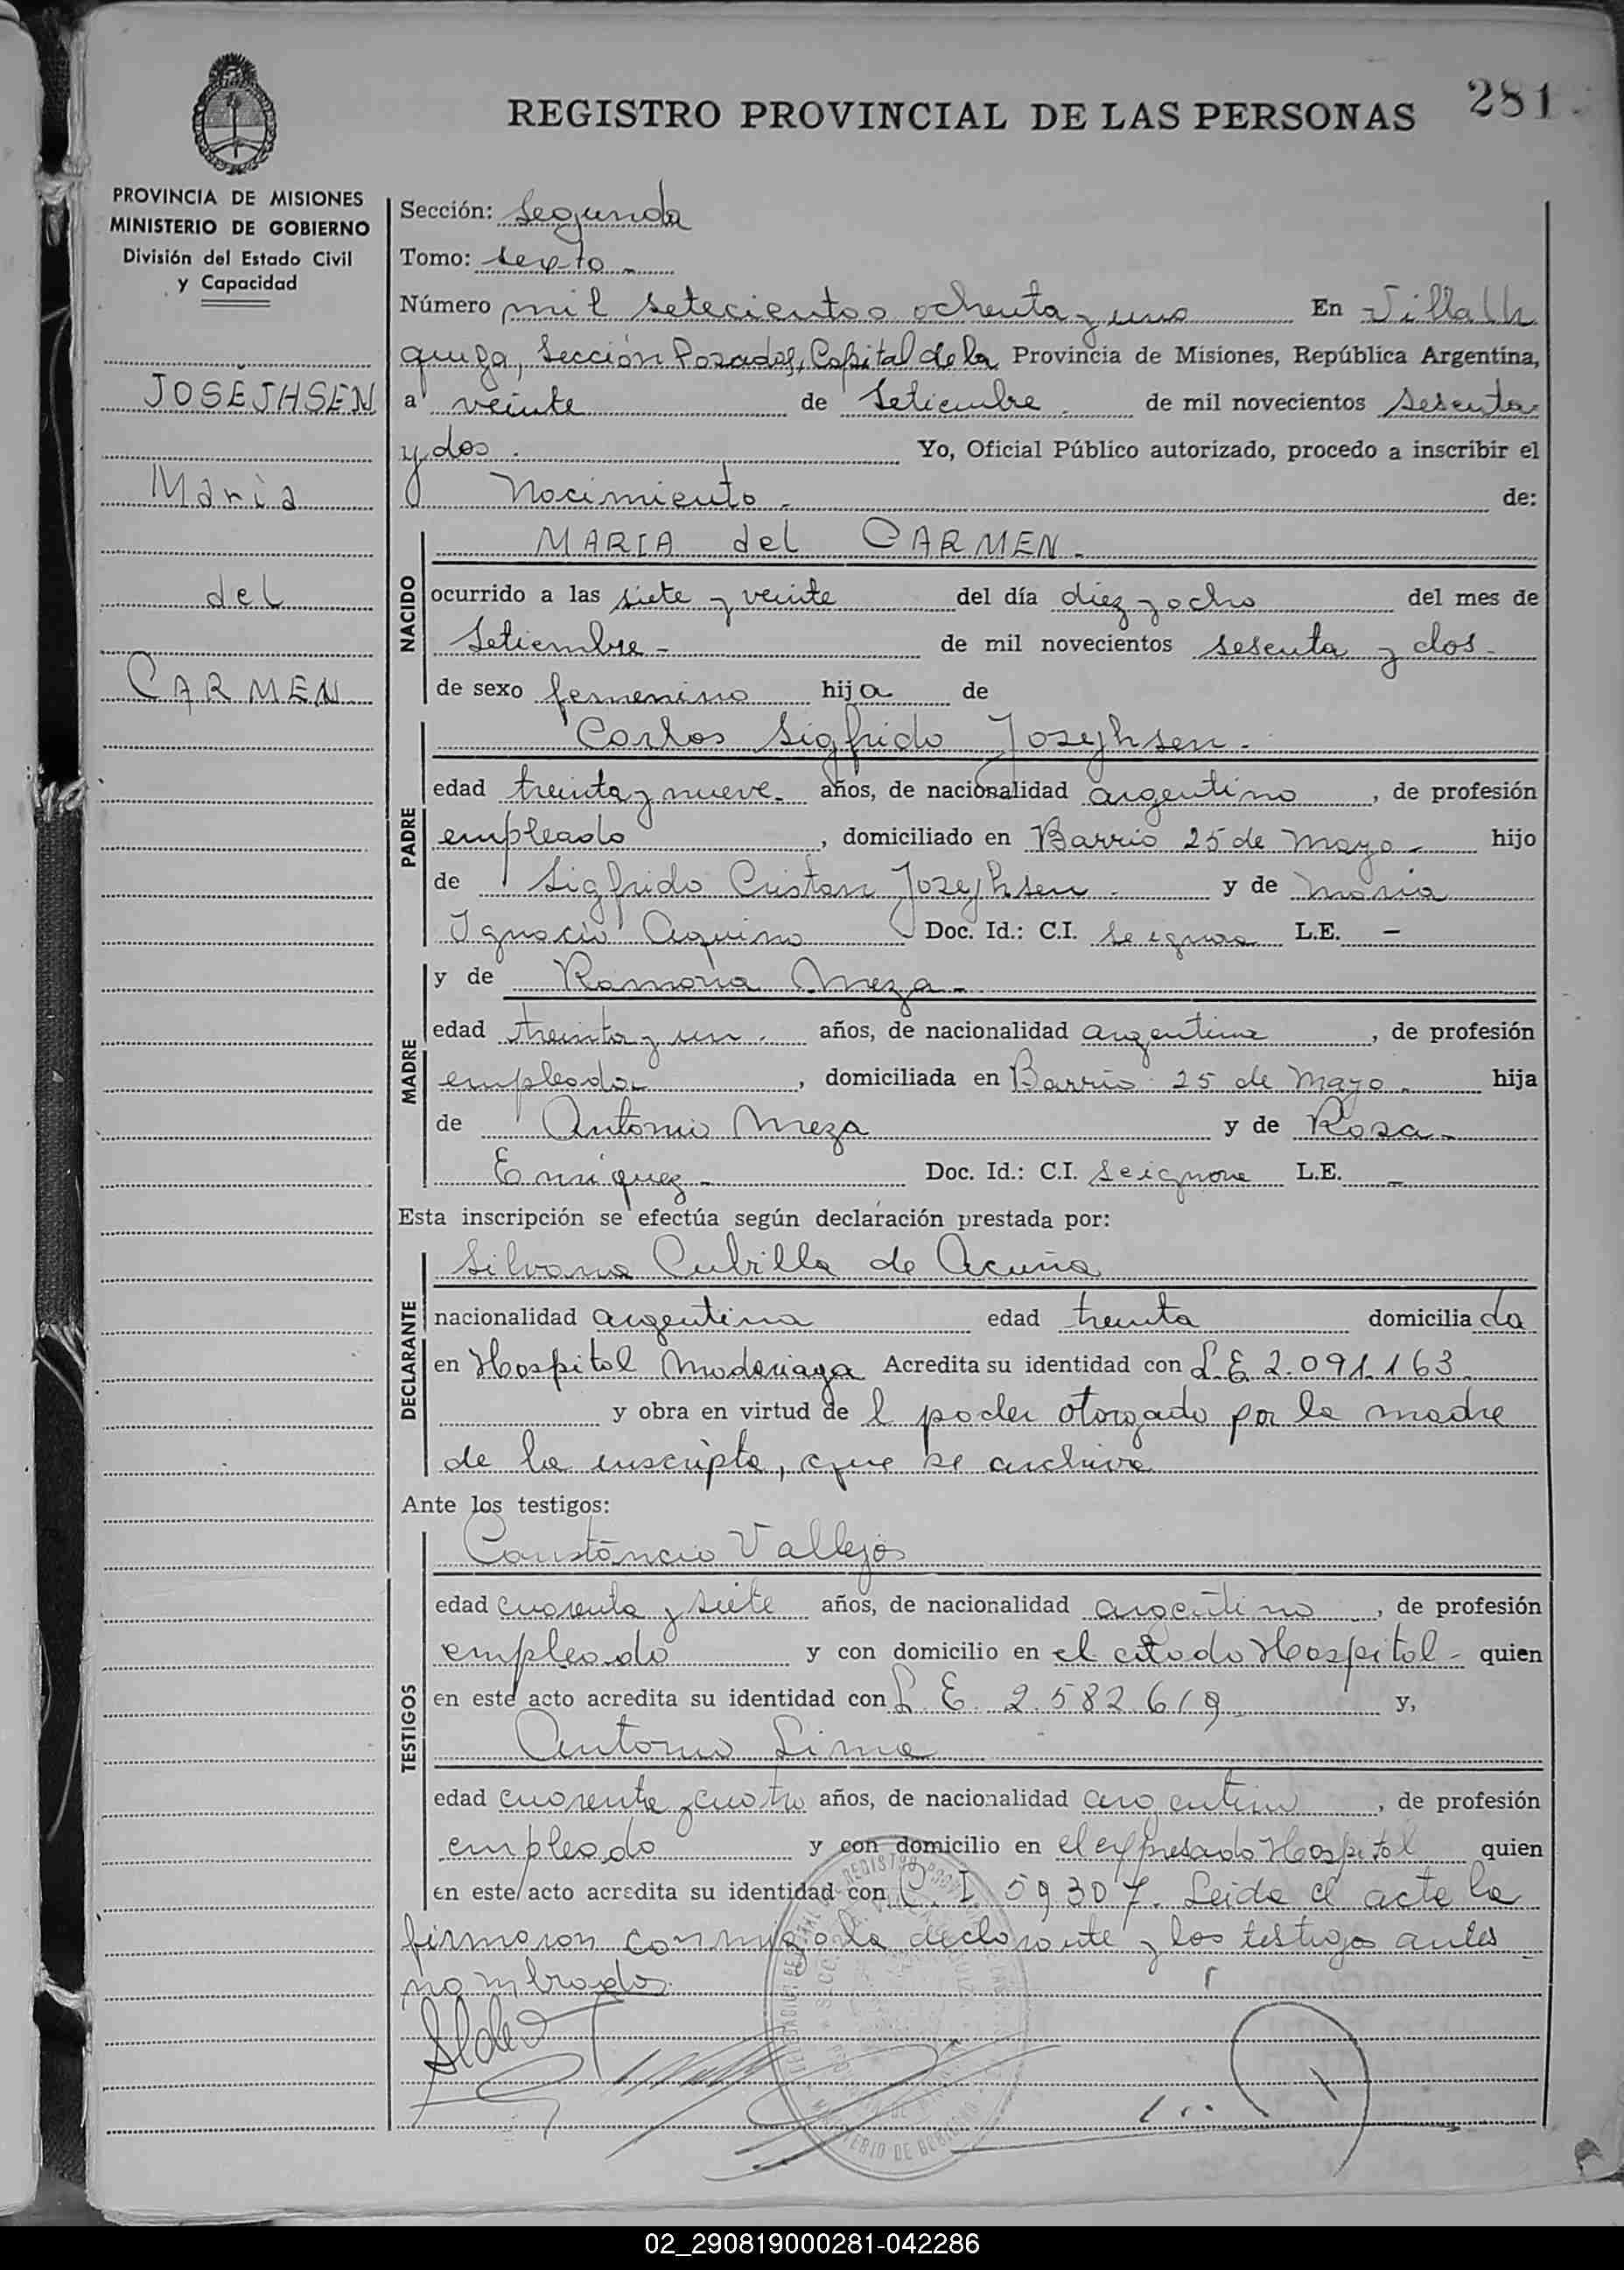 281
REGISTRO PROVINCIAL DE LAS PERSONAS
PROVINCIA DE MISIONES
MINISTERIO DE GOBIERNO
División del Estado Civil
y Capacidad
JOSEJHSEN
Maria
del
CARMEN
Sección: Segunda
Tomo: sexto
Número mil setecientos ochenta y uno En Villa Ur
quiza, Sección Posadas, Capital de la Provincia de Misiones, República Argentina,
a veinte de Setiembre de mil novecientos sesenta
y dos Yo, Oficial Público autorizado, procedo a inscribir el
Nacimiento de:
NACIDO
MARIA del CARMEN
ocurrido a las siete y veinte del día diez y ocho del mes de
Setiembre de mil novecientos sesenta y dos
de sexo femenino hija de
PADRE
Carlos Sigfrido Josejhsen
edad treinta y nueve años, de nacionalidad argentino, de profesión
empleado, domiciliado en Barrio 25 de Mayo hijo
de Sigfrido Cristan Josejhsen y de Maria
Ignacia Aquino Doc. Id.: C.I. se ignora L.E. -
MADRE
y de Ramona Meza
edad treinta y un años, de nacionalidad argentina, de profesión
empleada, domiciliada en Barrio 25 de Mayo hija
de Antonio Meza y de Rosa
Enriquez Doc. Id.: C.I. se ignora L.E. -
Esta inscripción se efectúa según declaración prestada por:
DECLARANTE
Silvana Cubilla de Acuña
nacionalidad argentina edad treinta domiciliada
en Hospital Madariaga Acredita su identidad con L.E 2.091.163
y obra en virtud del poder otorgado por la madre
de la inscripta, que se archiva
Ante los testigos:
TESTIGOS
Constancio Vallejos
edad cuarenta y siete años, de nacionalidad argentino, de profesión
empleado y con domicilio en el citado Hospital - quien
en este acto acredita su identidad con L.E. 2.582.619 y,
Antonio Lima
edad cuarenta y cuatro años, de nacionalidad argentino, de profesión
empleado y con domicilio en el expresado Hospital quien
en este acto acredita su identidad con C.I 59307. Leida el acta la
firmaron conmigo la declarante y los testigos antes
nombrados.
02_290819000281-042286